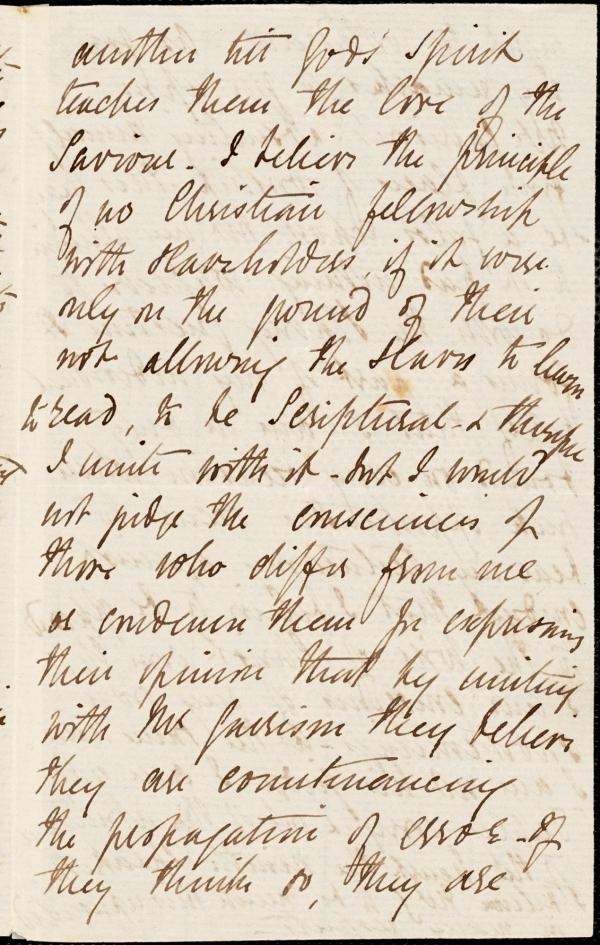 another till God's Spirit
teaches them the love of the
Saviour - I believe the principle
of no Christian fellowship
with slaveholders, if it were
only on the ground of their
not allowing the slaves to learn
to read, to be Scriptural - & therefore
I unite with it - but I would
not judge the consciences of
those who differ from me
or condemn them for expressing
their opinion that by uniting
with Mr Garrison they believe
they are countenancing
the propagation of error - If
they think so, they are